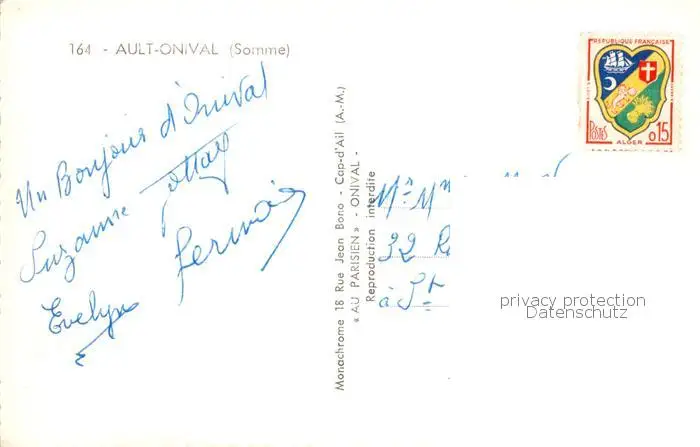 164 - AULT-ONIVAL (Somme)
Un Bonjour d'Onival
Suzanne
Evelyne Germain
Monachrome 18 Rue Jean Bono - Cap-d'Ail (A.-M.)
« AU PARISIEN » - ONIVAL -
Reproduction interdite
REPUBLIQUE FRANÇAISE
POSTES
0,15
ALGER
Mr Mme
32
à St
privacy protection
Datenschutz